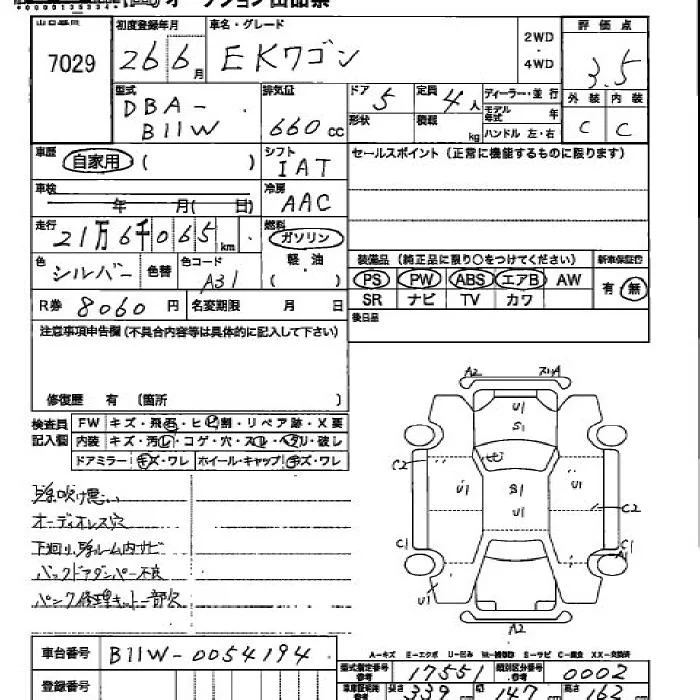 オークション出品票
7029
初度登録年月 車名・グレード 評価点
26 6月 EKワゴン 2WD・4WD 3.5
型式 排気量 ドア 定員 ディーラー・並行 外装 内装
DBA-B11W 660cc 5 4人 モデル年式 年 C C
形状 積載 kg ハンドル 左・右
車歴 自家用 ( ) シフト IAT セールスポイント (正常に機能するものに限ります)
車検 年 月( 日) 冷房 AAC
走行 21万6千065km 燃料 ガソリン
軽油
( )
色 シルバー 色替 色コード A31
装備品 (純正品に限り○をつけてください) 新車保証書
PS PW ABS エアB AW 有・無
SR ナビ TV カワ
R券 8060円 名変期限 月 日 後日品
注意事項申告欄(不具合内容等は具体的に記入して下さい)
修復歴 有 (箇所 )
検査員記入欄 FW キズ・飛石・ヒビ割・リペア跡・X要
内装 キズ・汚レ・コゲ・穴・スレ・ヘタリ・破レ
ドアミラー キズ・ワレ ホイール・キャップ キズ・ワレ
オーディオレス穴
下廻り、
バックドアダンパー不良
パンク修理キット一部欠
A2
U1
S1
C2
U1
S1
U1
U1
C2
C1
C1
A1
U1
A2
車台番号 B11W-0054194
登録番号
A-キズ E-エクボ U-凹み W-補修跡 S-サビ C-腐食 XX-交換済
型式指定番号 17551 類別区分番号 0002
長さ 339cm 幅 147cm 高さ 162cm